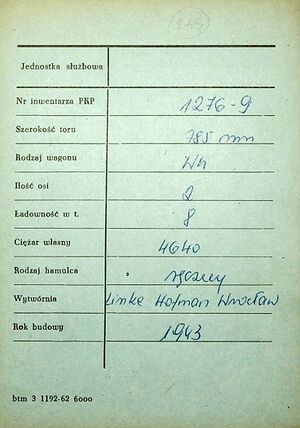 (245)
Jednostka służbowa
Nr inwentarza PKP 1276-9
Szerokość toru 785 mm
Rodzaj wagonu Wh
Ilość osi 2
Ładowność w t. 8
Ciężar własny 4640
Rodzaj hamulca ręczny
Wytwórnia Linke Hofman Wrocław
Rok budowy 1943
btm 3 1192-62 6000